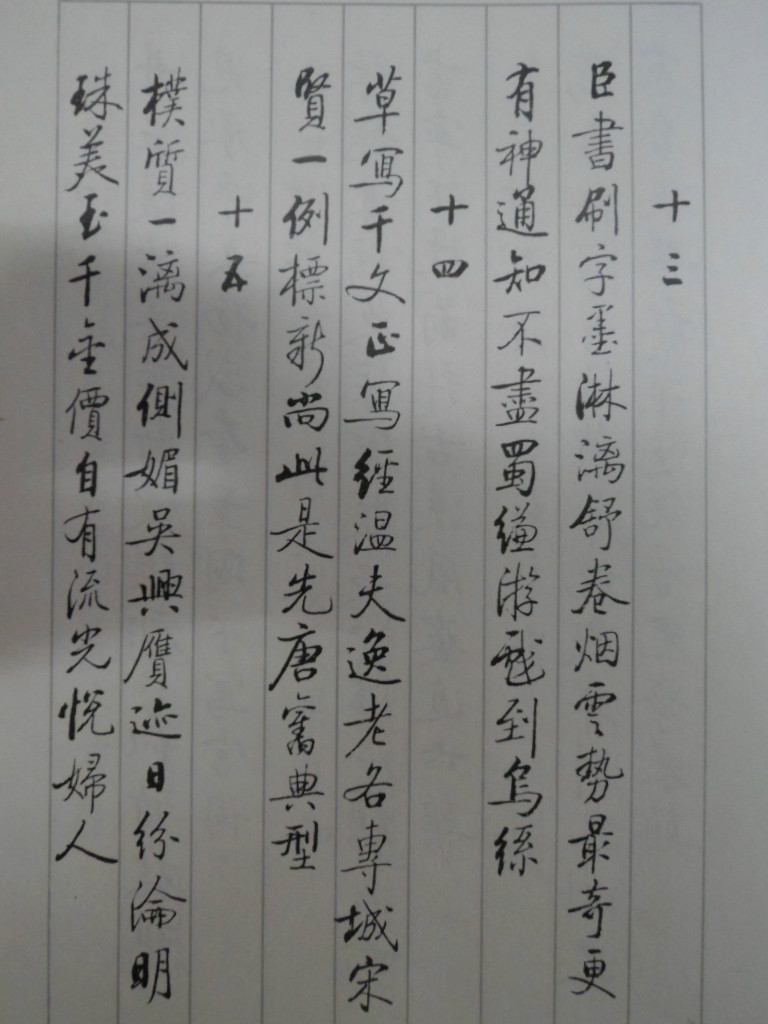 十三
臣書刷字墨淋漓舒卷烟雲勢最奇更
有神通知不盡蜀縑游戲到烏絲
十四
草寫千文正寫經温夫逸老各專城宋
賢一例標新尚此是先唐舊典型
十五
樸質一漓成側媚吳興贋迹日紛淪明
珠美玉千金價自有流光悦婦人